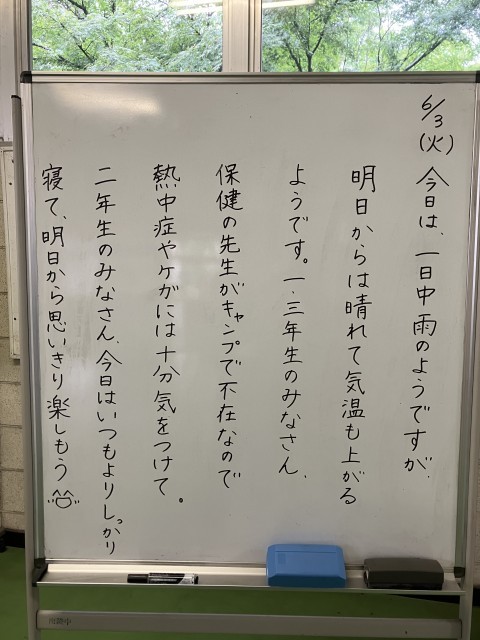 6/3
(火)
今日は、一日中雨のようですが、
明日からは晴れて気温も上がる
ようです。一、三年生のみなさん、
保健の先生がキャンプで不在なので
熱中症やケガには十分気をつけて。
二年生のみなさん、今日はいつもよりしっかり
寝て、明日から思いきり楽しもう